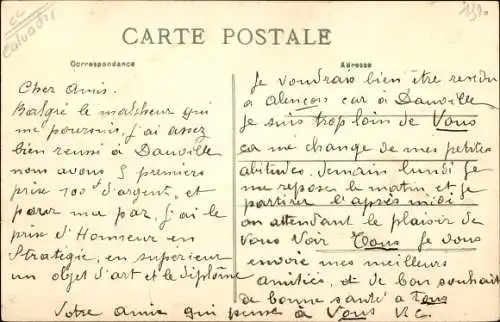 CC
Calvados
CARTE POSTALE
Correspondance
Adresse
Cher Amis.
Malgré le malsheur qui
me poursuis, j'ai assez
bien reussi à Dauville
nous avons 5 premiers
prise 100d d'argent, et
pour ma par, j'ai le
prise d'Honneur en
Stratégie, en superieur
un objet d'art et le diplôme
Je voudrais bien être rendu
a alençois car à Dauville
Je suis trop loin de Vous
ça me change de mes petites
abitudes. demain lundi je
me repose le matin et je
partirer l'après midi
en attendant le plaisir de
Vous Voir Tous Je vous
envoie mes meilleurs
amitiés, et de bon souhait
de bonne santé a Tous
Votre Amie qui pense à Vous R.C.